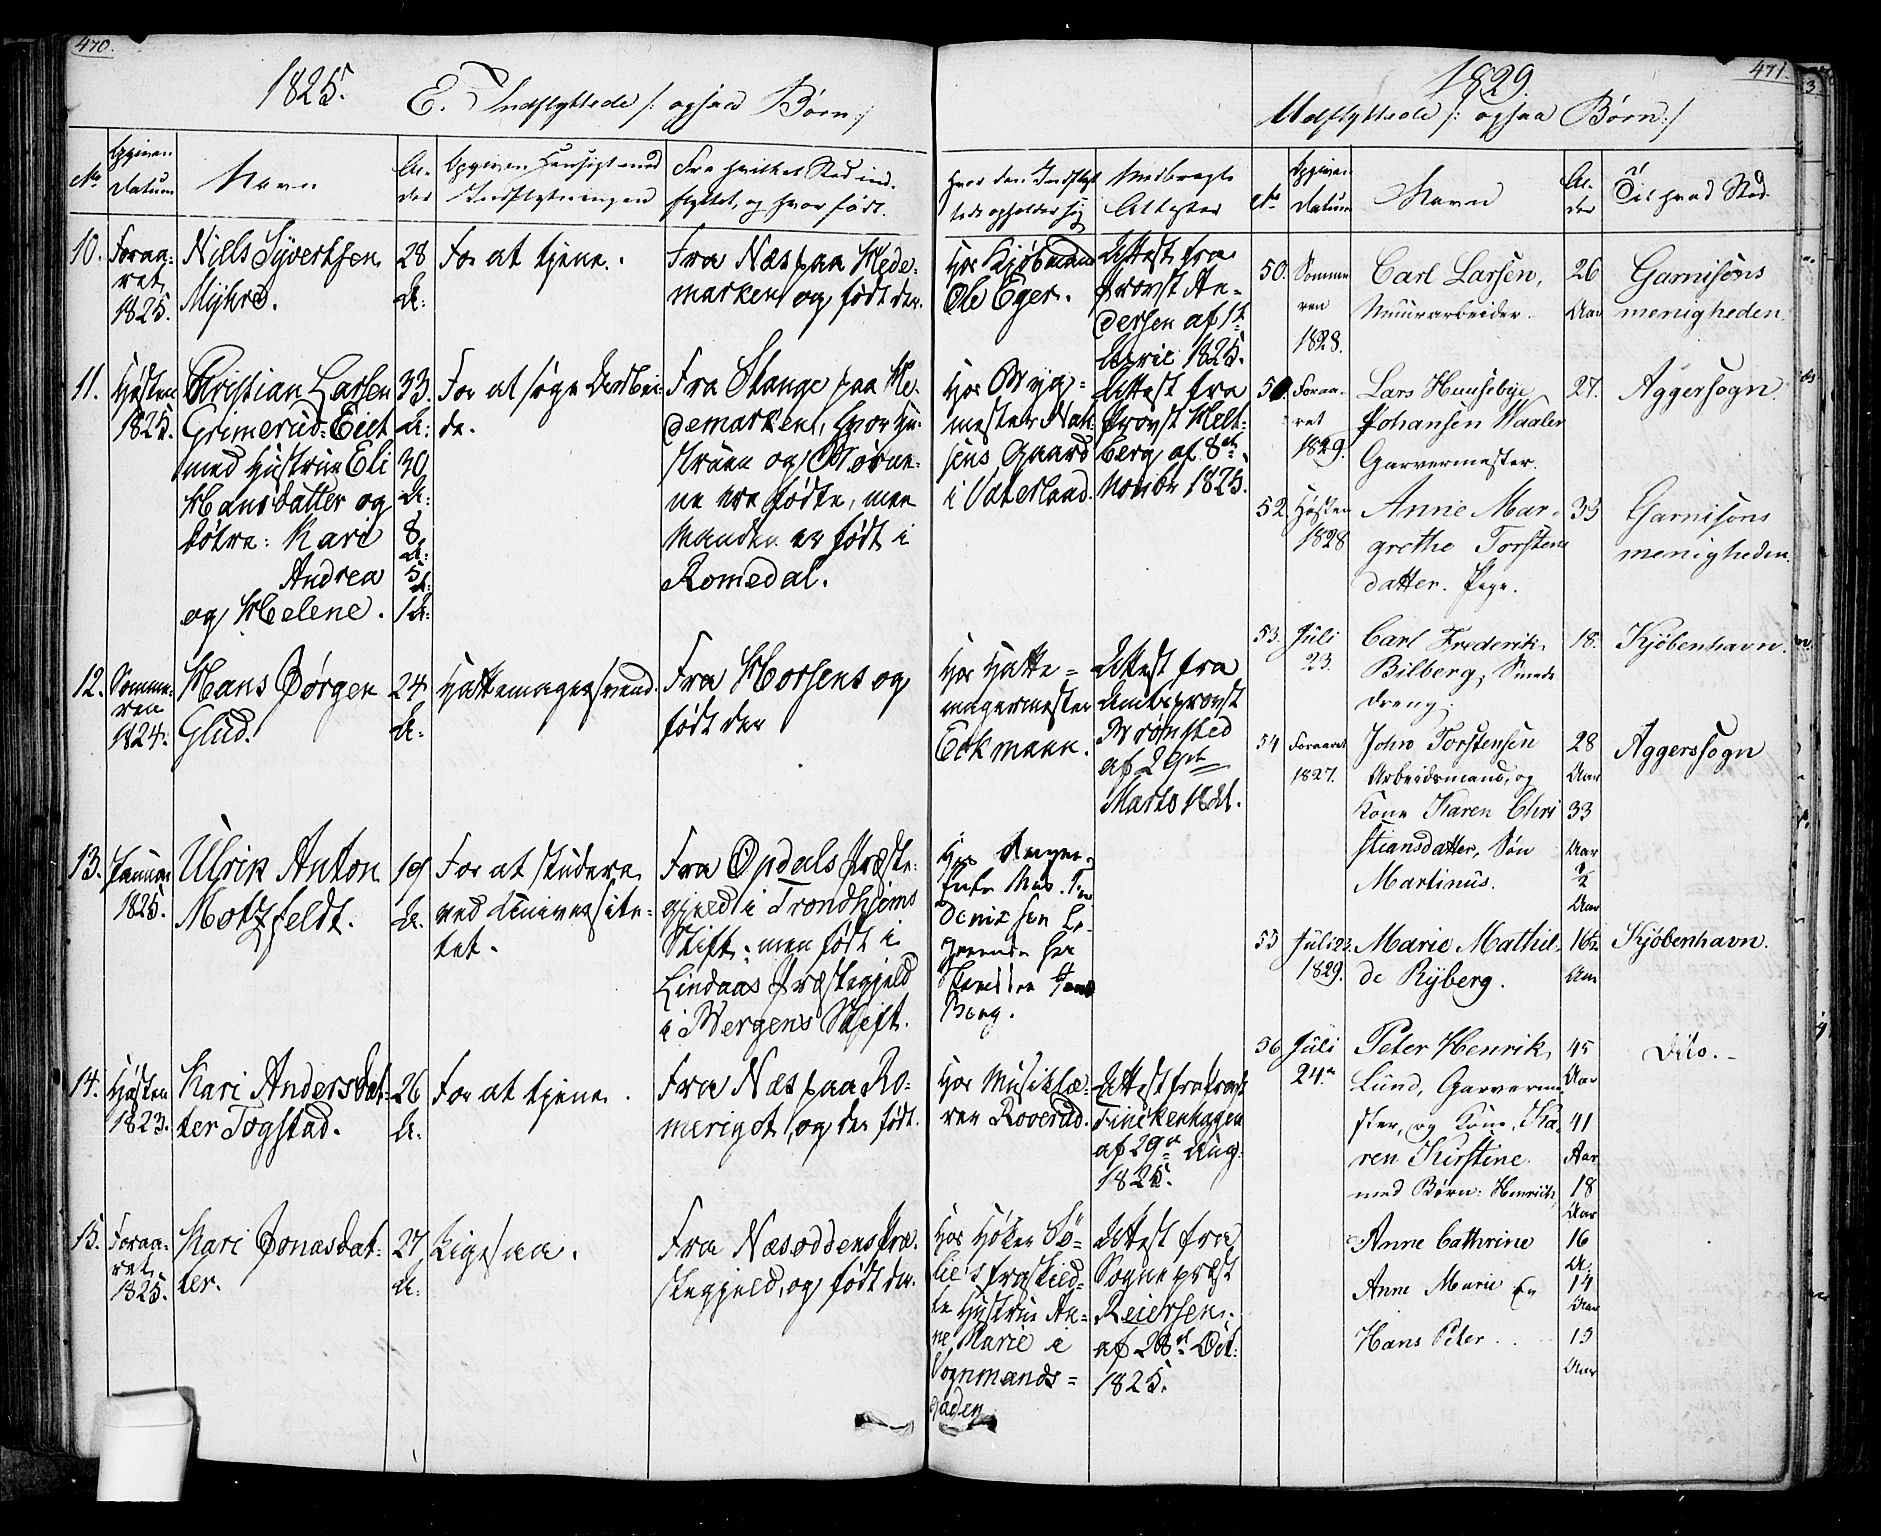 470.
1825.
E. Indflyttede /: ogsaa Børn :/
No
Opgiven Datum
Navn
Al-
der
Opgiven Hensigt med
Indflytningen
Fra hvilket Sted ind-
flyttet, og hvor født.
Hvor den Indflyt
tede opholder sig
Medbragte
Attester
10.
Foraa-
ret
1825.
Niels Syvertsen
Myhre.
28
A:
For at tjene.
Fra Næs paa Hede-
marken og født der.
Hos Kjøbmand
Ole Eger.
Attest fra
Provst An-
dersen af 12
April 1825.
11.
Høsten
1825.
Christian Larsen
Grimerud-Eiet
med Hustrue Eli
Hansdatter og
døtre: Kari
Andrea
og Helene.
33.
A:
30
A:
8
A:
5
A:
1 A:
For at søge Arbei-
de.
Fra Stange paa He-
demarken, hvor Hu-
struen og Børne-
ne ere fødte, men
Manden er født i
Romedal.
Hos Byg-
mester
sens Gaard
i Vaterland.
Attest fra
Provst Helt-
berg af 8de
Novbr 1825.
12.
Somme-
ren
1824.
Hans Jørgen
Glud.
24
A:
Hattemagersvend.
Fra Horsens og
født der
Hos Hatte-
magermester
Eckmann.
Attest fra
Amtsprovst
Brønsted
af 29de
Marts 1821.
13.
Januar
1825.
Ulrik Anton
Motzfeldt.
19
A.
For at studere
ved Universite-
tet.
Fra Opdals Præste-
gjeld i Trondhjems
Stift; men født i
Lindaas Præstegjeld
i Bergens Stift.
Hos
Borg.
14.
Høsten
1823.
Kari Andersdat-
ter Togstad.
26
A.
For at tjene.
Fra Næs paa Ro-
merigot, og der født.
Hos Musiklæ-
rer Roverud.
Attest fra Provst
Finckenhagen
af 29de Aug.
1825.
15.
Foraa-
ret
1825.
Kari Jonasdat-
ter.
27
A.
Ligesaa.
Fra Næsoddens Præ-
stegjeld, og født der.
Hos Høker Sø-
lie's fraskild-
te Hustrue An-
ne Marie i
Vognmands-
gaden
Attest fra
Sognepræst
Reiersen,
af 28de Oct:
1825.
471.
1829.
Udflyttede /: ogsaa Børn :/
No
Opgiven
Datum
Navn
Al-
der
Til hvad Sted
50.
Somme
ren
1828.
Carl Larsen,
Muurarbeider.
26
Aar
Garnisons
menigheden.
Foraa-
ret
1829.
Lars Huuseby
Johansen Waaler
Garvermester.
27.
Aggersogn.
52.
Høsten
1828
Anne Mar-
grethe Torstens
datter. Pige.
33
Garnisons
menigheden.
53.
Juli
23.
Carl Frederik
Bilberg, Smede
dreng.
18.
Kjøbenhavn.
54
Foraaret
1827.
John Torstensen
Arbeidsmand, og
Kone Karen Chri
stiansdatter, Søn
Martinus.
28
Aar
33
Aar
½
Aar
Aggerssogn
55
Juli 23
1829.
Marie Mathil-
de Ryberg.
16½
Aar
Kjøbenhavn.
56
Juli
24.
Peter Henrik
Lund, Garverme
ster, og Kone, Ka-
ren Kirstine
med Børn: Henrich
Anne Cathrine
Anne Marie og
Hans Peter.
45
Aar
41
Aar
18
Aar
16
A.
14
Aar
13
Aar
Dito.